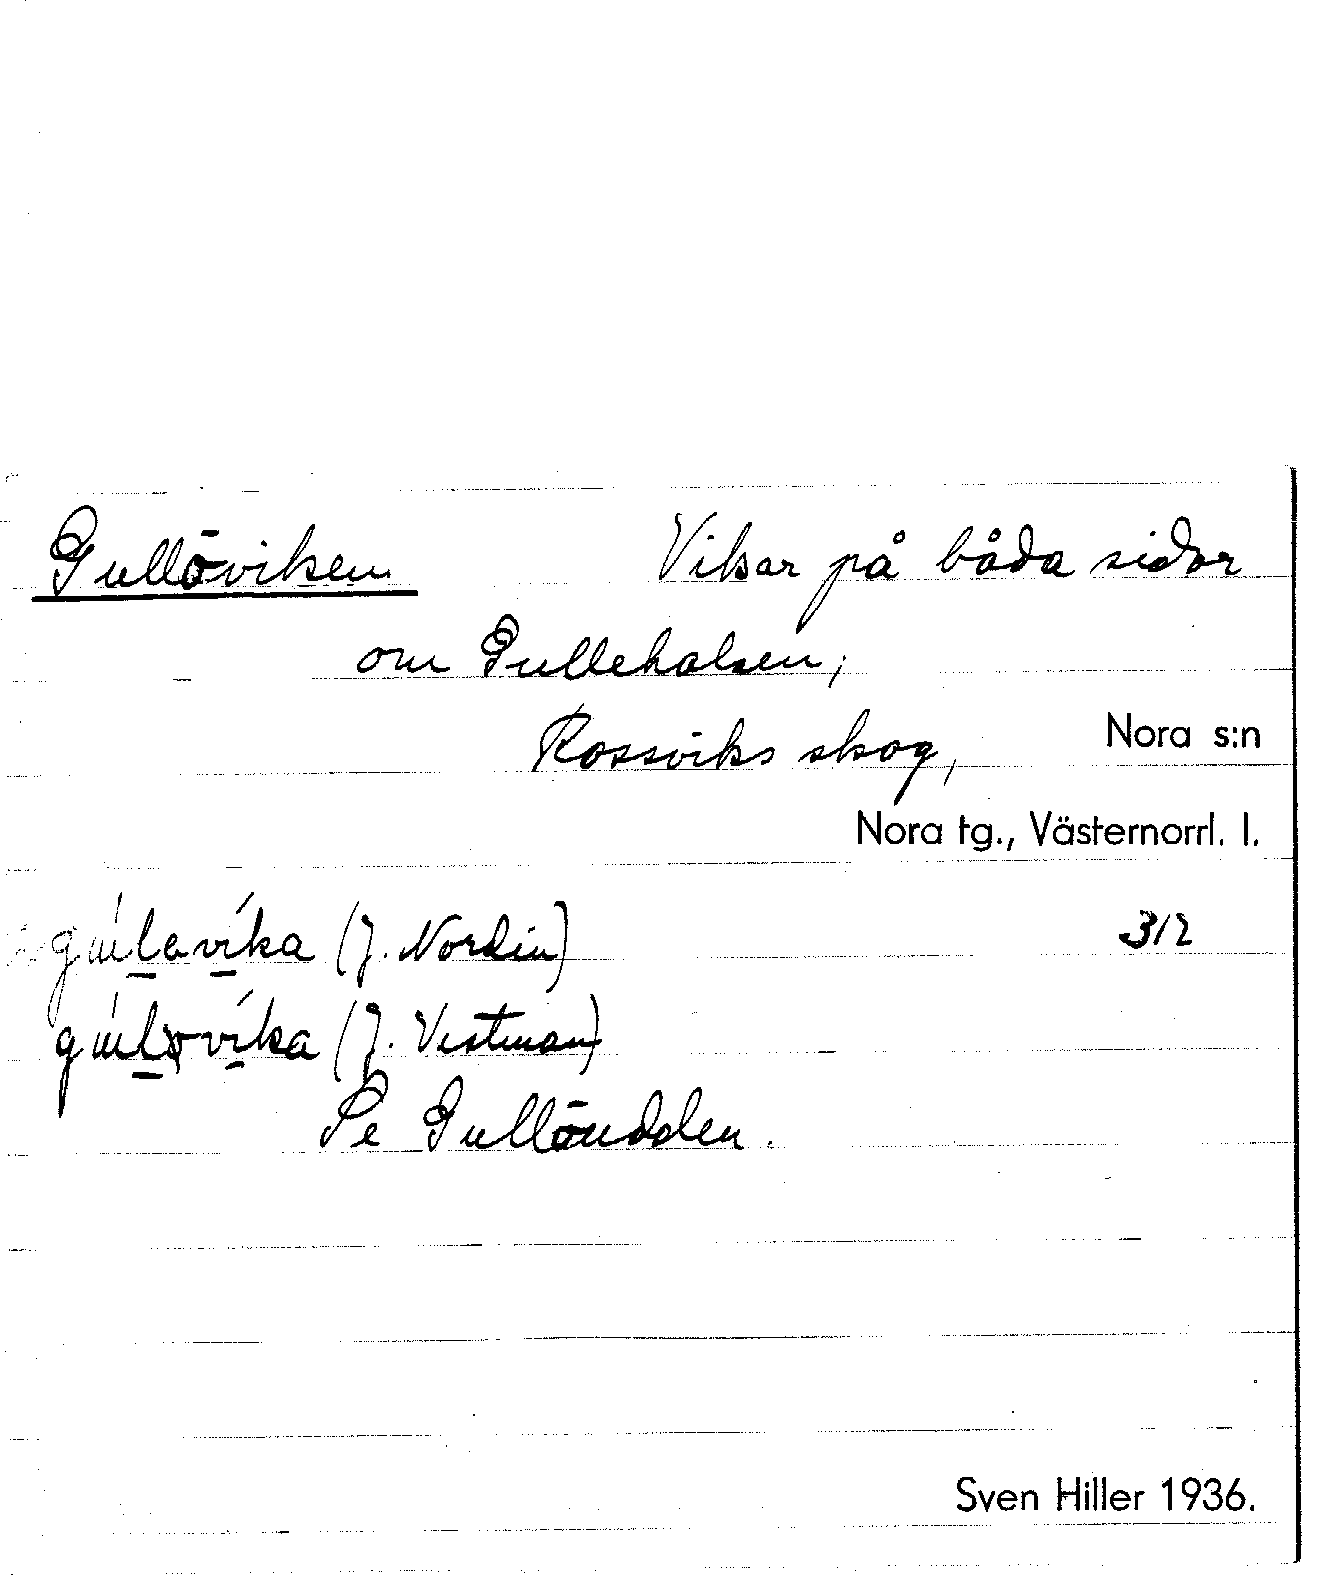 Gullöviken Vikar på båda sidor
om Gullehalsen,
Rossviks skog, Nora s:n
Nora tg., Västernorrl. l.
(J. Nordin) 312
(J. Vestman)
Se Gullöudden.
Sven Hiller 1936.